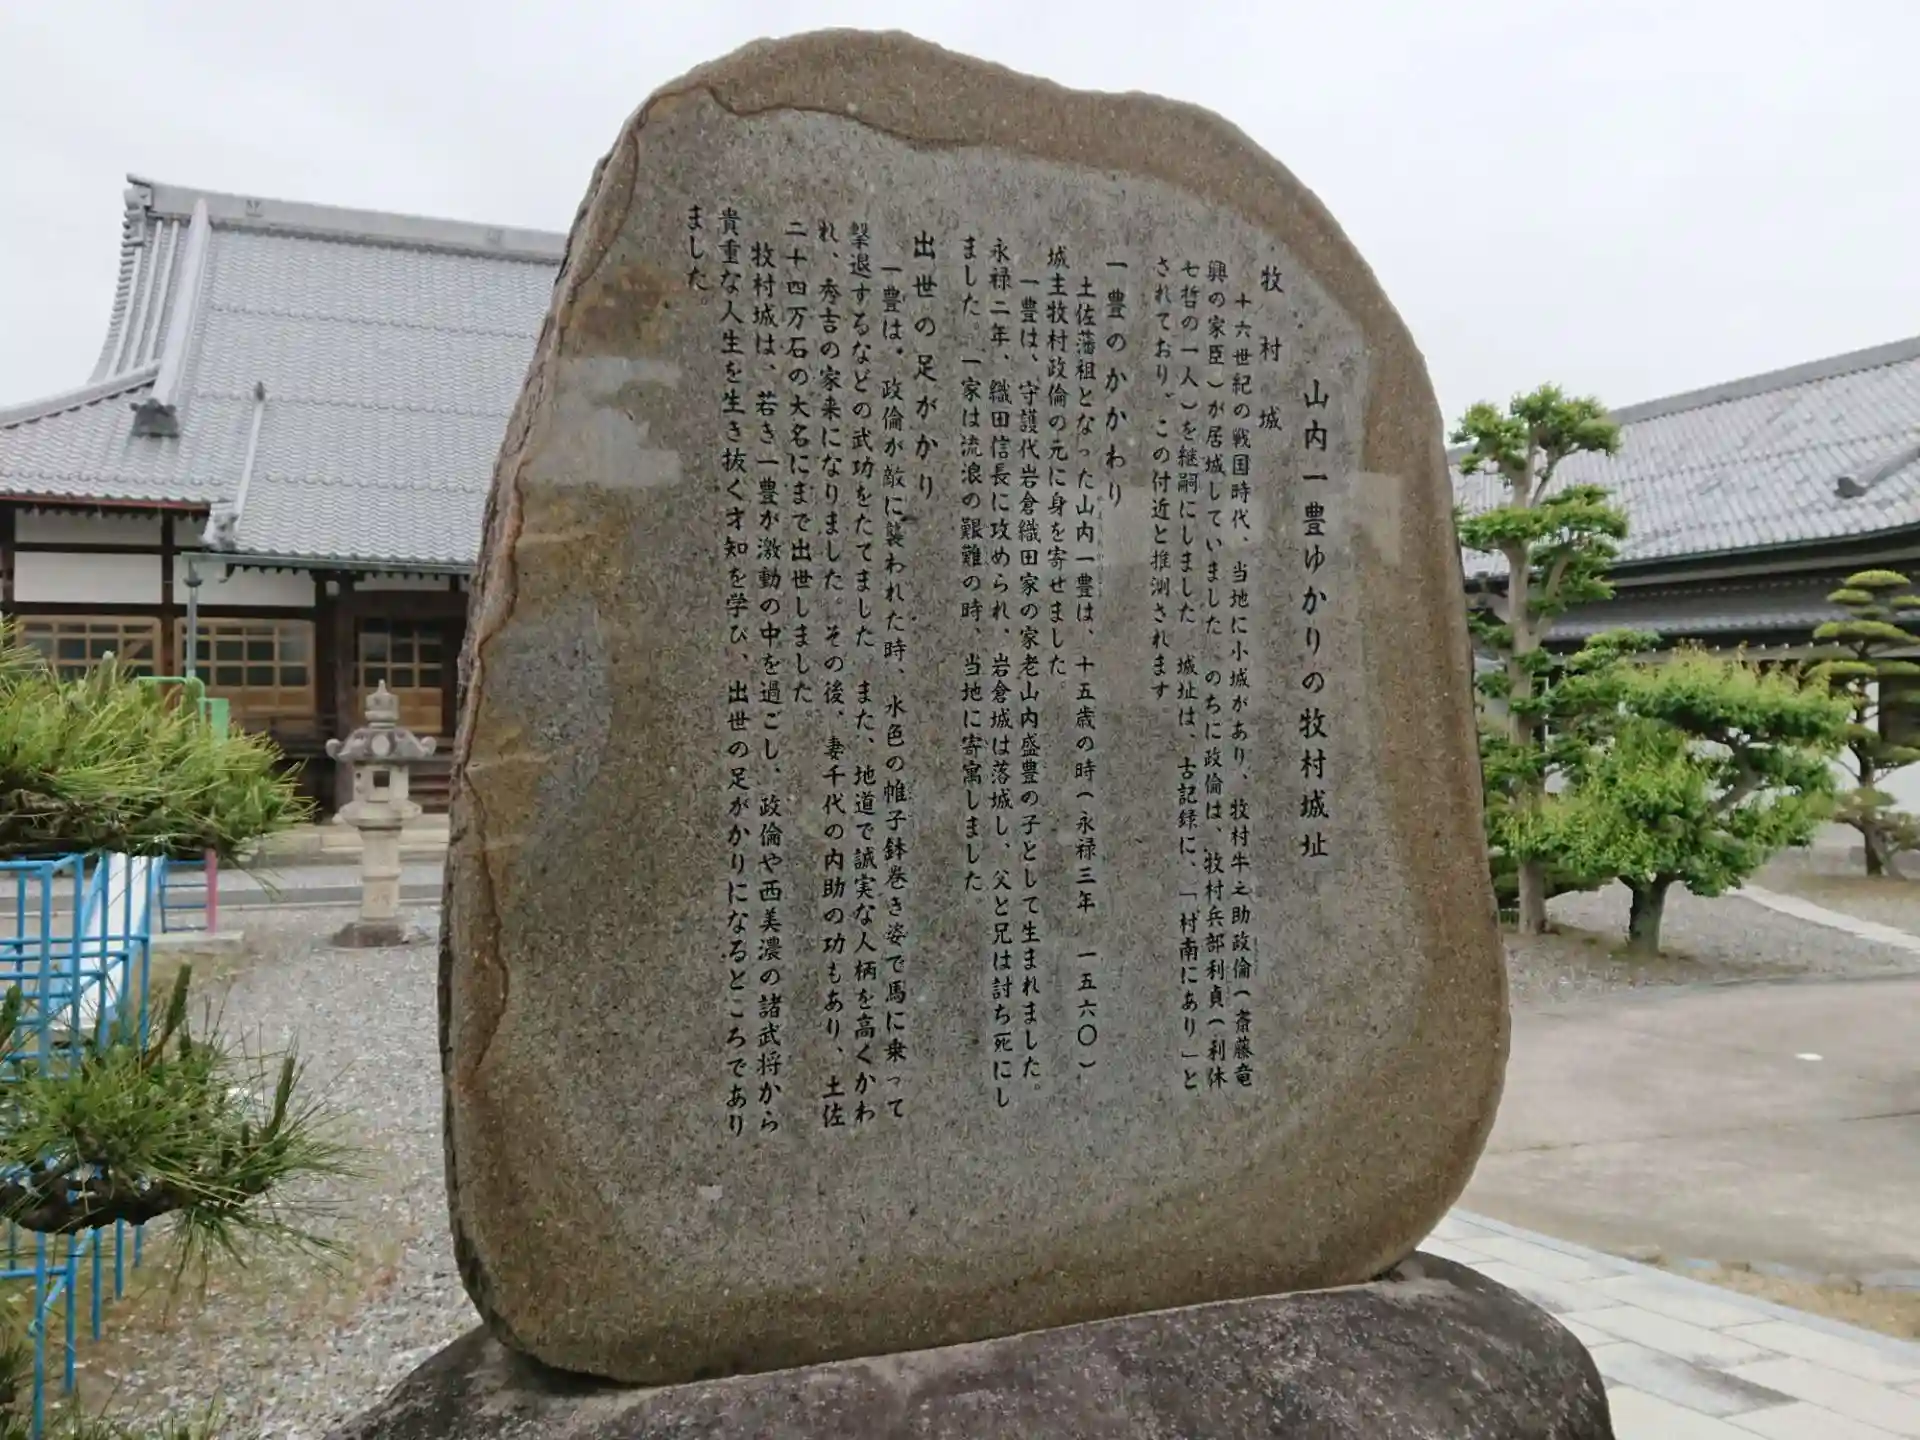 山内一豊ゆかりの牧村城址
牧村城
十六世紀の戦国時代、当地に小城があり、牧村牛之助政倫(斎藤竜
興の家臣)が居城していました。のちに政倫は、牧村兵部利貞(利休
七哲の一人)を継嗣にしました。城址は、古記録に、「村南にあり」と
されており、この付近と推測されます。
一豊のかかわり
土佐藩祖となった山内一豊は、十五歳の時(永禄三年 一五六〇)
城主牧村政倫の元に身を寄せました。
一豊は、守護代岩倉織田家の家老山内盛豊の子として生まれました。
永禄二年、織田信長に攻められ、岩倉城は落城し、父と兄は討ち死にし
ました。一家は流浪の艱難の時、当地に寄寓しました。
出世の足がかり
一豊は、政倫が敵に襲われた時、水色の帷子鉢巻き姿で馬に乗って
撃退するなどの武功をたてました。また、地道で誠実な人柄を高くかわ
れ、秀吉の家来になりました。その後、妻千代の内助の功もあり、土佐
二十四万石の大名にまで出世しました。
牧村城は、若き一豊が激動の中を過ごし、政倫や西美濃の諸武将から
貴重な人生を生き抜く才知を学び、出世の足がかりになるところであり
ました。